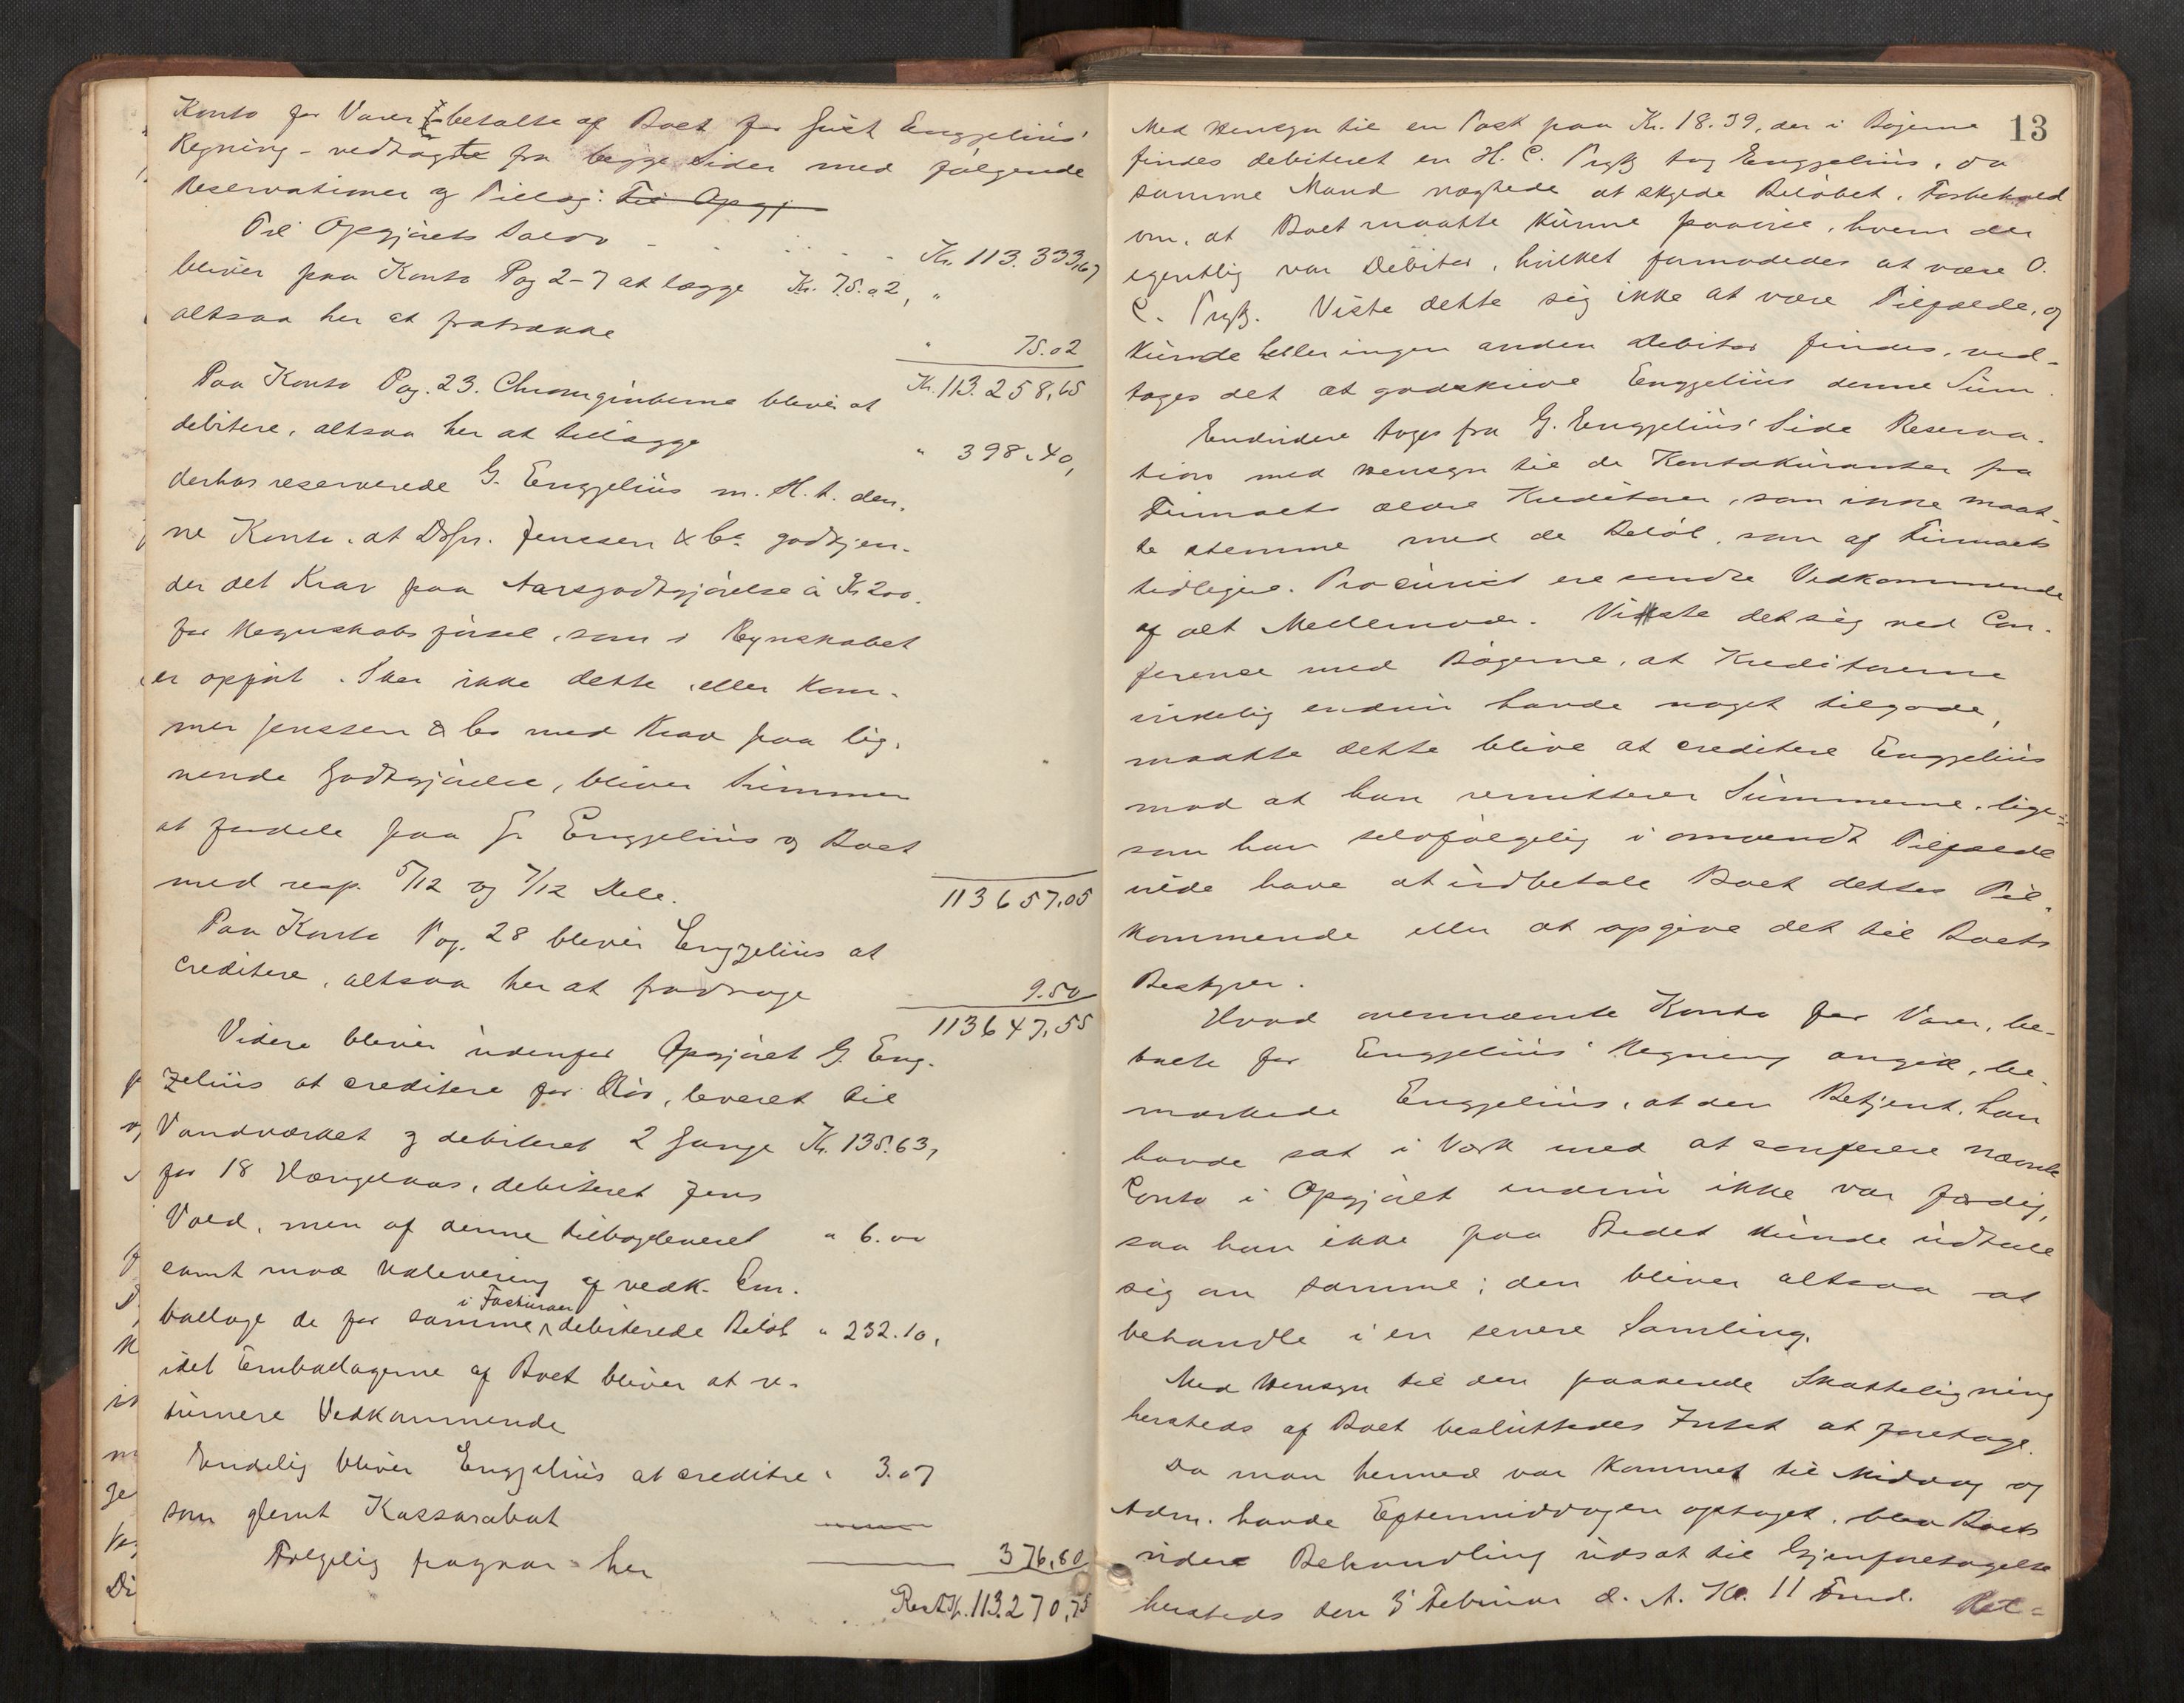 Konto for Varer betalte af Boet for Gust Engzelius'
Regning - vedtagte fra begge Sider med følgende
Reservationer og Tillæg: Til Opgj
Til Opgjørets Saldo - - - - Kr. 113.333,67
bliver paa Konto Pag 2-7 at lægge Kr. 75.02, "
altsaa her at fratrække " 75.02
Kr. 113.258,65
Paa Konto Pag. 23. Chromgruberne bliver at
debitere, altsaa her at tillægge " 398.40,
derhos reserverede G. Engzelius m. H. t. den-
ne Konto, at DHrr. Jenssen & Co godkjen-
der det Krav paa Aarsgodtgjørelse à Kr 200.
for Regnskabsførsel, som i Regnskabet
er opført. Sker ikke dette, eller kom-
mer Jenssen & Co med Krav paa lig-
nende Godtgjørelse, bliver Summen
at fordele paa G. Engzelius og Boet
med resp. 5/12 og 7/12 Dele. 113657.05
Paa Konto Pag. 28 bliver Engzelius at
creditere, altsaa her at fradrage 9.50
113647,55
Videre bliver udenfor Opgjøret G. Eng-
zelius at creditere for Rør, leveret til
Vandværket og debiteret 2 Gange Kr. 135.63,
for 18 Hængelaas, debiteret Jens
Vold, men af denne tilbageleveret " 6.00
samt mod Udlevering af vedk. Em-
ballage de for samme i Facturaer debiterede Beløb " 232.10,
idet Emballagerne af Boet bliver at re-
turnere Vedkommende
Endelig bliver Engzelius at creditere " 3.07
som glemt Kassarabat
Følgelig fragaar her 376,80
Rest Kr. 113.270,75
13
Med Hensyn til en Post paa Kr. 18.39, der i Bøgerne
findes debiteret en H. C. Prytz tog Engzelius, da
samme Mand nægtede at skyde Beløbet, Forbehold
om, at Boet maatte kunne paavise, hvem der
egentlig var Debitor, hvilket formodedes at være O.
C. Prytz. Viste dette sig ikke at være Tilfælde, og
kunde heller ingen anden Debitor findes, ved-
toges det at godskrive Engzelius denne Sum.
Endvidere toges fra G. Engzelius' Side Reserva-
tion med Hensyn til de Kontokuranter fra
Firmaets ældre Kreditorer, som ikke maat-
te stemme med de Beløb, som af Firmaets
tidligere Procurist ere sendte Vedkommende
af alt Mellemvær. Viste det sig ved Con-
ference med Bøgerne, at Kreditorerne
virkelig endnu havde noget tilgode,
maatte dette blive at creditere Engzelius
mod at han remitterer Summerne, lige-
som han selvfølgelig i omvendt Tilfælde
vilde have at indbetale Boet dettes Til-
kommende eller at opgive det til Boets
Bestyrer.
Hvad ovennævnte Konto for Varer, be-
talte for Engzelius' Regning angik, be-
mærkede Engzelius, at den Betjent, han
havde sat i Værk med at conferere nævnte
Conto i Opgjøret endnu ikke var færdig,
saa han ikke paa Stedet kunde udtale
sig om samme; den bliver altsaa at
behandle i en senere Samling.
Med Hensyn til den passerede Skatteligning
hersteds af Boet besluttedes Intet at foretage.
Da man hermed var kommet til Middag og
Adm. havde Eftermiddagen optaget, blev Boets
videre Behandling udsat til Gjenforetagelse
hersteds den 5 Februar d. A. Kl. 11 Fmd. Ret-